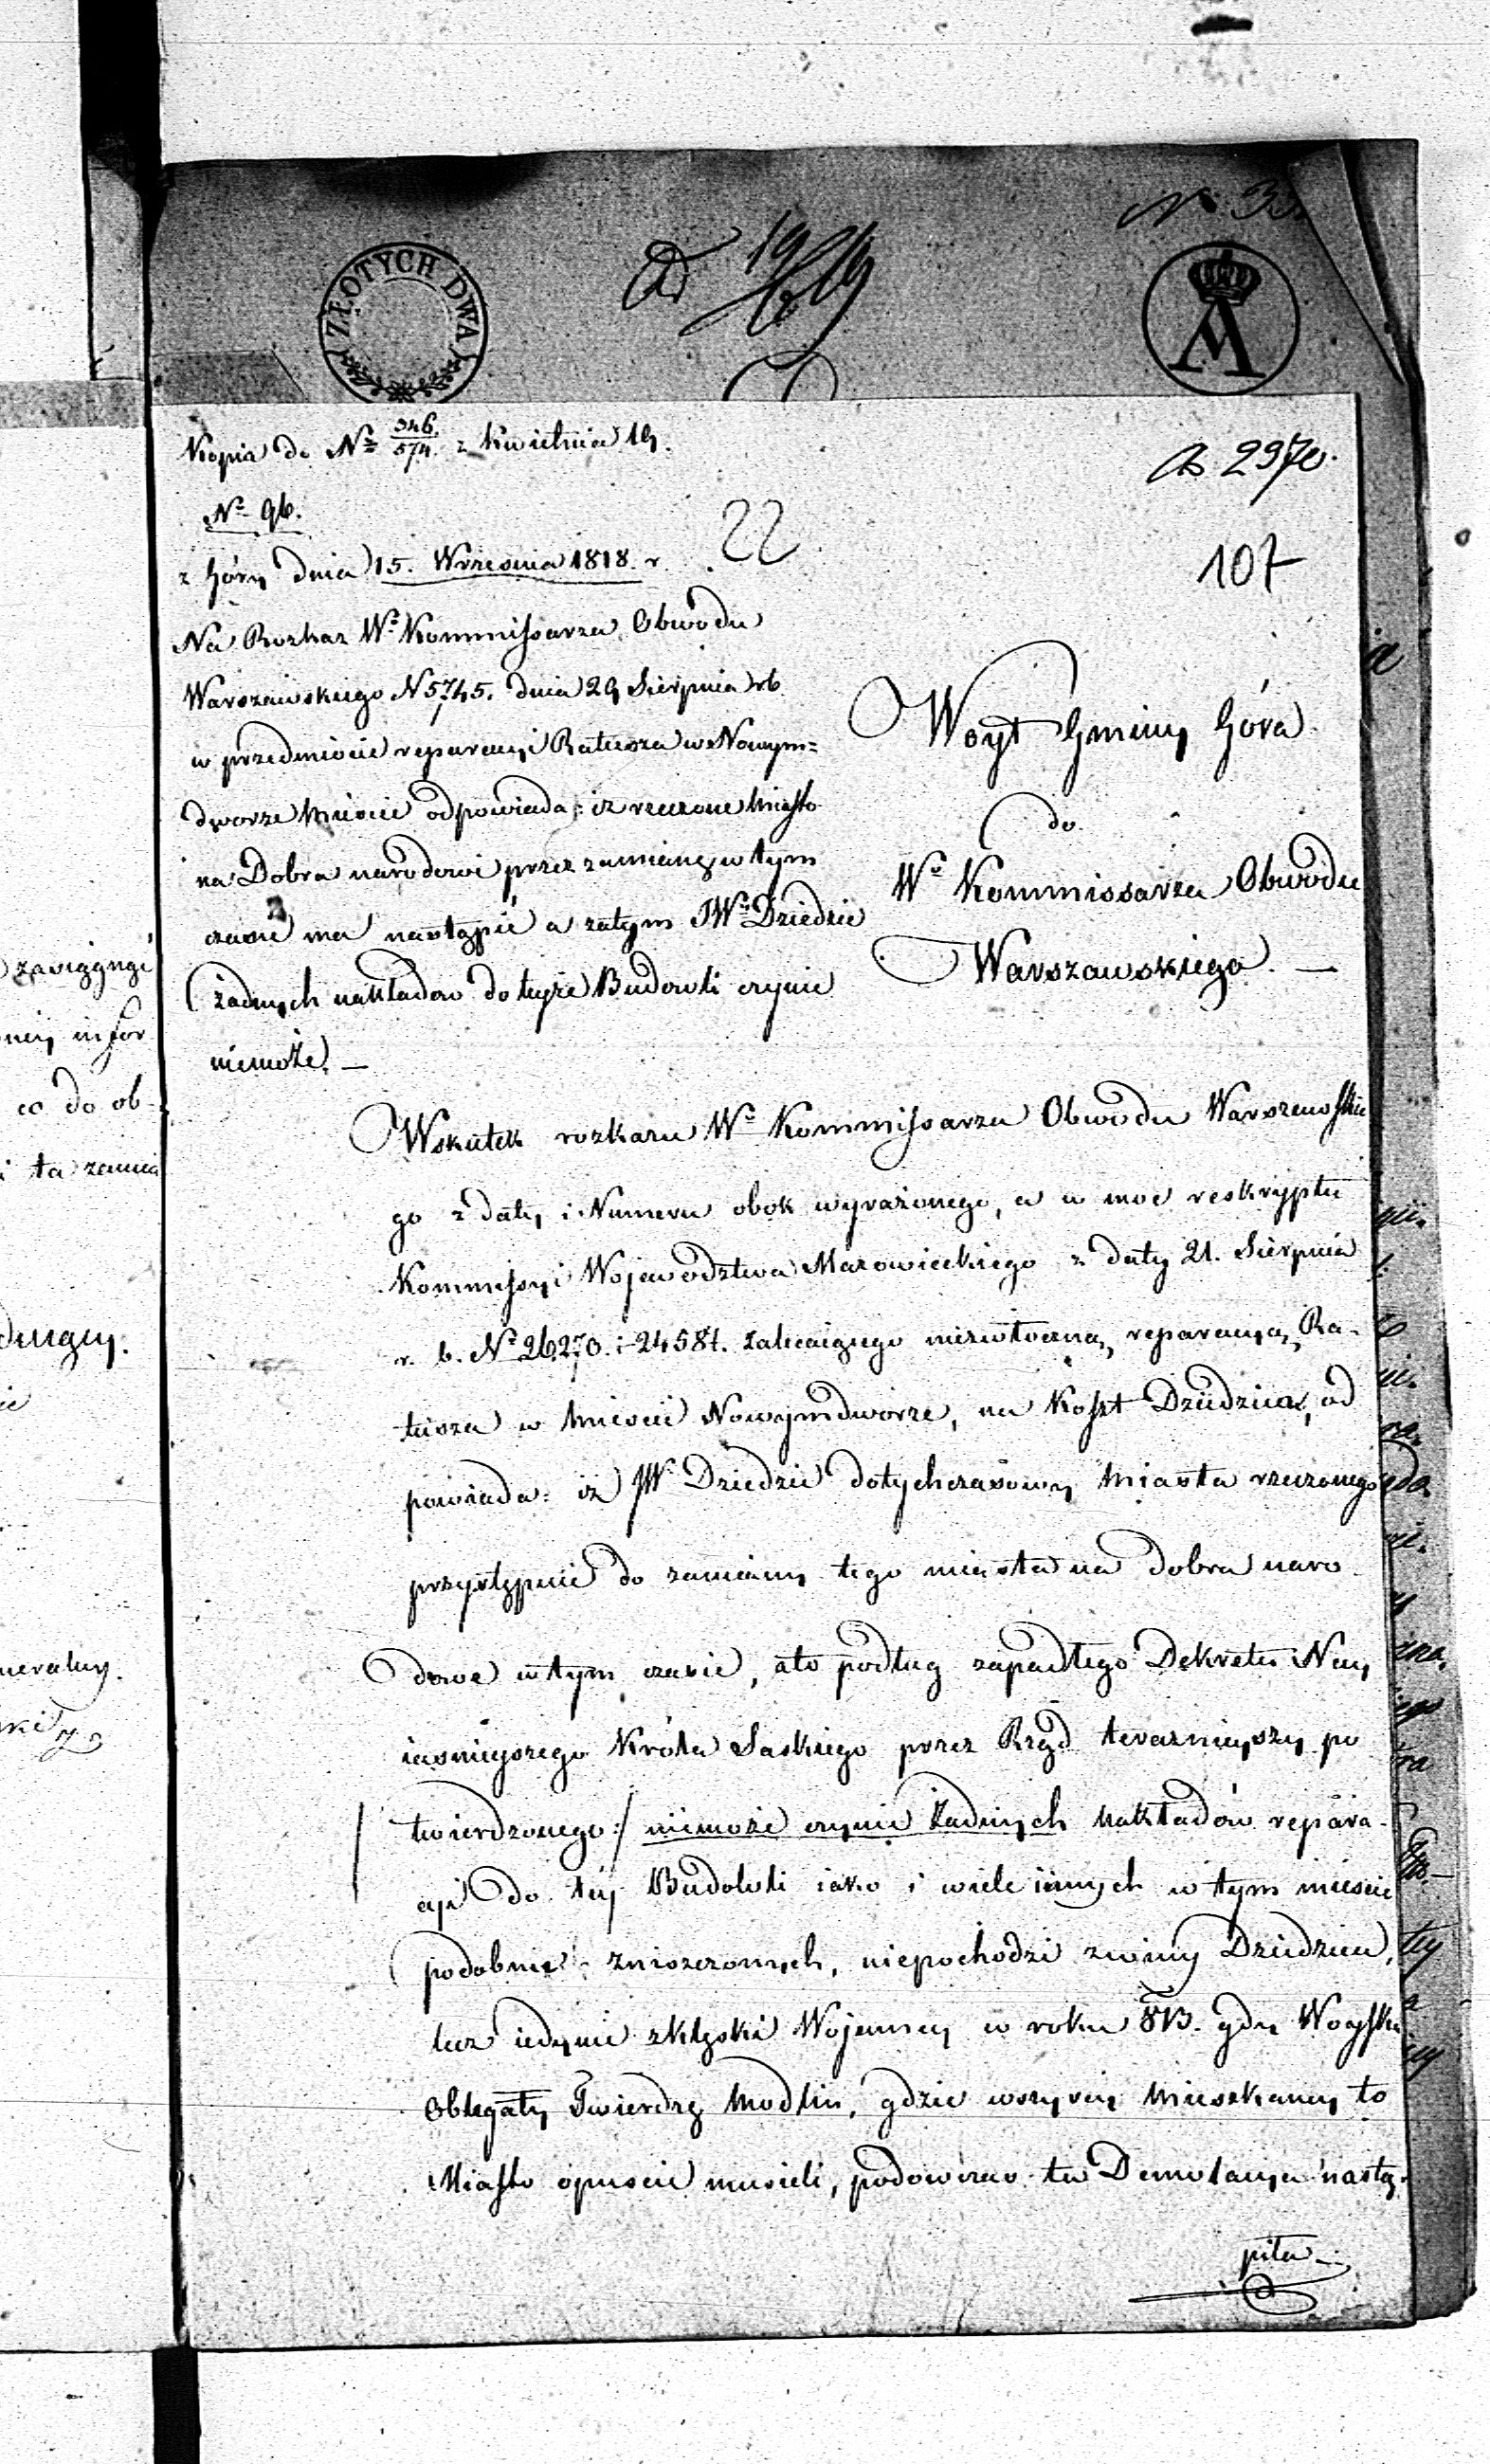 N 3
ZŁOTYCH DWA
Kopia do Nº 346./574. z Kwietnia 19.
2970.
Nº 96.
22
107
z Góry dnia 15. Wrzesnia 1818. r.
Na Rozkaz Wº Kommissarza Obwodu
Warszawskiego N 5745. dnia 29 Sierpnia rb
w przedmiocie reparacyi Ratusza w Nowym=
dworze Miescie odpowiada: iz rzeczone Miasto
na Dobra narodowe przez zamianę w tym
czasie ma nastąpić a zatym JWº Dziedzic
żadnych nakładow do teyże Budowli czynić
niemoże. —
Woyt Gminy Góra
do
Wº Kommissarza Obwodu
Warszawskiego. —
Wskutek rozkazu Wº Kommissarza Obwodu Warszawskie
go z daty i Numeru obok wyrażonego, a w moc reskryptu
Kommissyi Województwa Mazowieckiego z daty 21. Sierpnia
r. b. Nº 26270. i 24584. zalecaiącego niezwłoczną reparacyą Ra-
tusza w Miescie Nowymdworze, na Koszt Dziedzica, od
powiada: iz JW Dziedzic dotychczasowy Miasta rzeczonego
przystąpienie do zamiany tego miasta na dobra naro
dowe w tym czasie, ato podług zapadłego Dekretu Nay
iasnieyszego Króla Saskiego przez Rząd teraznieyszy po
twierdzonego:/ niemoże czynić żadnych nakładów repara-
cyi do tey Budowli iako i wiele innych w tym miescie
podobnie zniszczonych, niepochodzi zwiny Dziedzica,
lecz iedynie zklęski Wojenney w roku 813. gdy Woyska
oblegały Twierdzę Modlin, gdzie wszyscy Mieszkancy to
Miasto opuscić musieli, podowczas ta Demolacya nastą-
piła